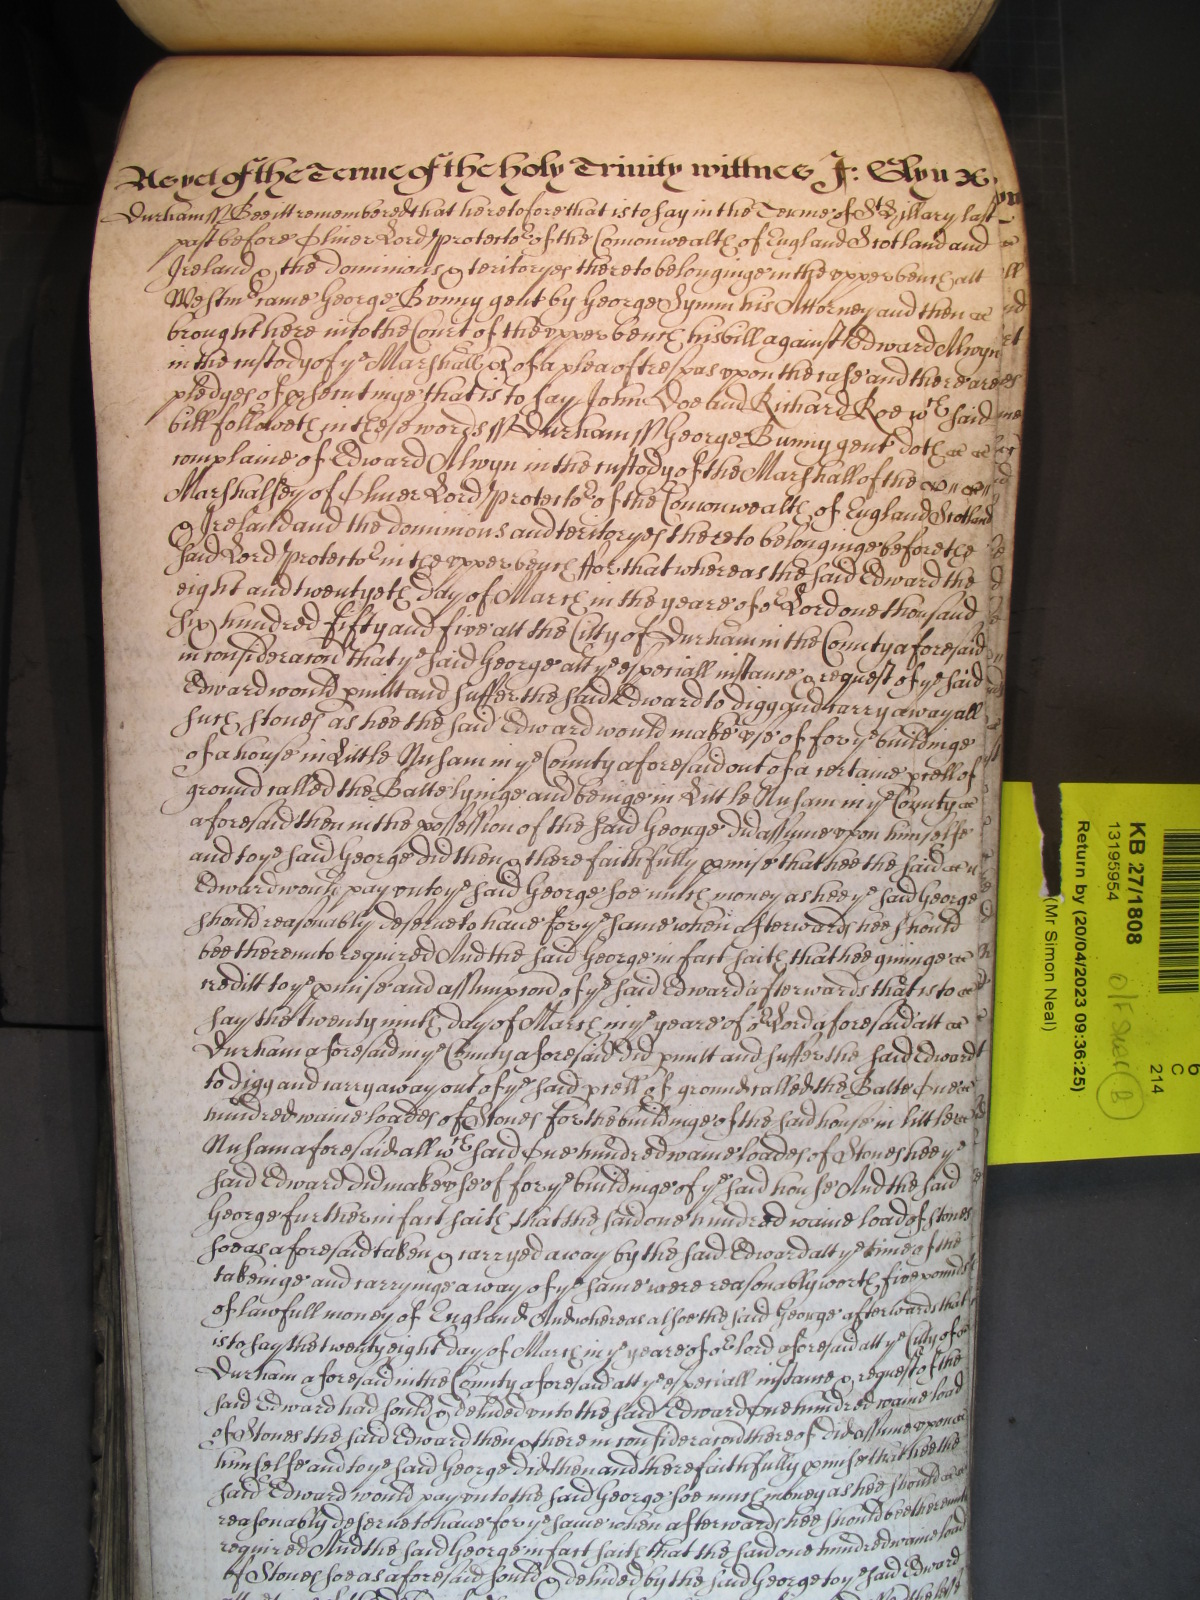 As yet of the Terme of the holy Trinity wittnes J: Glyn &c
Durham ss Bee itt remembered that heretofore that is to say in the Terme of St Hillary last
past before Oliver Lord protector of the Comonwealth of England Scotland and
Ireland & the dominions & teritoryes thereto belonginge in the upper bench att
Westmr came George Bunny gent by George Symm his Attorney and then
brought here into the Court of the upper bench his bill against Edward Alwyn
in the custody of ye Marshall &c of a plea of trespas upon the case and there are
pledges of psecutinge that is to say John Doe and Richard Roe wch said
bill followeth in these words ss Durham ss George Bunny gent doth
complaine of Edward Alwyn in the custody of the Marshall of the
Marshalsey of Oliver Lord protector of the Comonwealth of England Scotland
& Ireland and the dominions and teritoryes thereto belonginge before the
said Lord protector in the upper bench ffor that whereas the said Edward the
eight and twentyeth day of March in the yeare of or Lord one thousand
six hundred fifty and five att the Citty of Durham in the County aforesaid
in consideracon that ye said George att ye especiall instance & request of ye said
Edward would pmitt and suffer the said Edward to digg and carry away all
such stones as hee the said Edward would make use of for ye buildinge
of a house in Little Nusam in ye County aforesaid out of a certaine pcell of
ground called the Batte lyinge and beinge in Little Nusam in ye County
aforesaid then in the possession of the said George did assume upon himselfe
and to ye said George did then & there faithfully pmise that hee the said
Edward would pay unto ye said George soe much money as hee ye said George
should reasonably deserve to have for ye same when afterwards hee should
bee thereunto required And the said George in fact saith that hee givinge
creditt to ye pmise and assumpcond of ye said Edward afterwards that is to
say the twenty ninth day of March in ye yeare of or Lord aforesaid att
Durham aforesaid in ye County aforesaid did pmitt and suffer the said Edward
to digg and carry away out of ye said pcell of ground called the Batte One
hundred waine loades of Stones for the buildinge of the said house in little
Nusam aforesaid all wch said One hundred waine loades of Stones hee ye
said Edward did make use of for ye buildinge of ye said house And the said
George further in fact saith that the said one hundred waine load of stones
soe as aforesaid taken & carryed away by the said Edward att ye time of the
takeinge and carryinge away of ye same were reasonably worth five pounds
of lawfull money of England And whereas alsoe the said George afterwards that
is to say the twenty eight day of March in ye yeare of or lord aforesaid att ye Citty of
Durham aforesaid in the County aforesaid att ye especiall instance & request of the
said Edward had sould & delived unto the said Edward One hundred waine load
of Stones the said Edward then & there in consideracond thereof did assume upon
himselfe and to ye said George did then and there faithfully pmise that hee the
said Edward would pay unto the said George soe much money as hee should
reasonably deserve to have for ye same when afterwards hee should bee thereunto
required And the said George in fact saith that the said one hundred waine load
of Stones soe as aforesaid sould & delived by the said George to ye said Edward
KB 27/1808
13195954
Return by (20/04/2023 09:36:25)
(Mr Simon Neal)
6
C
214
B